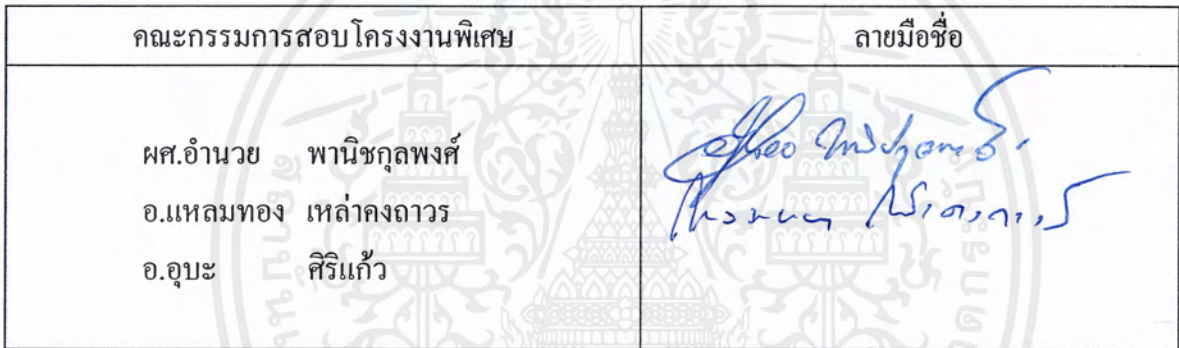 คณะกรรมการสอบโครงงานพิเศษ ลายมือชื่อ
ผศ.อำนวย พานิชกุลพงศ์
อ.แหลมทอง เหล่าคงถาวร
อ.อุบะ ศิริแก้ว